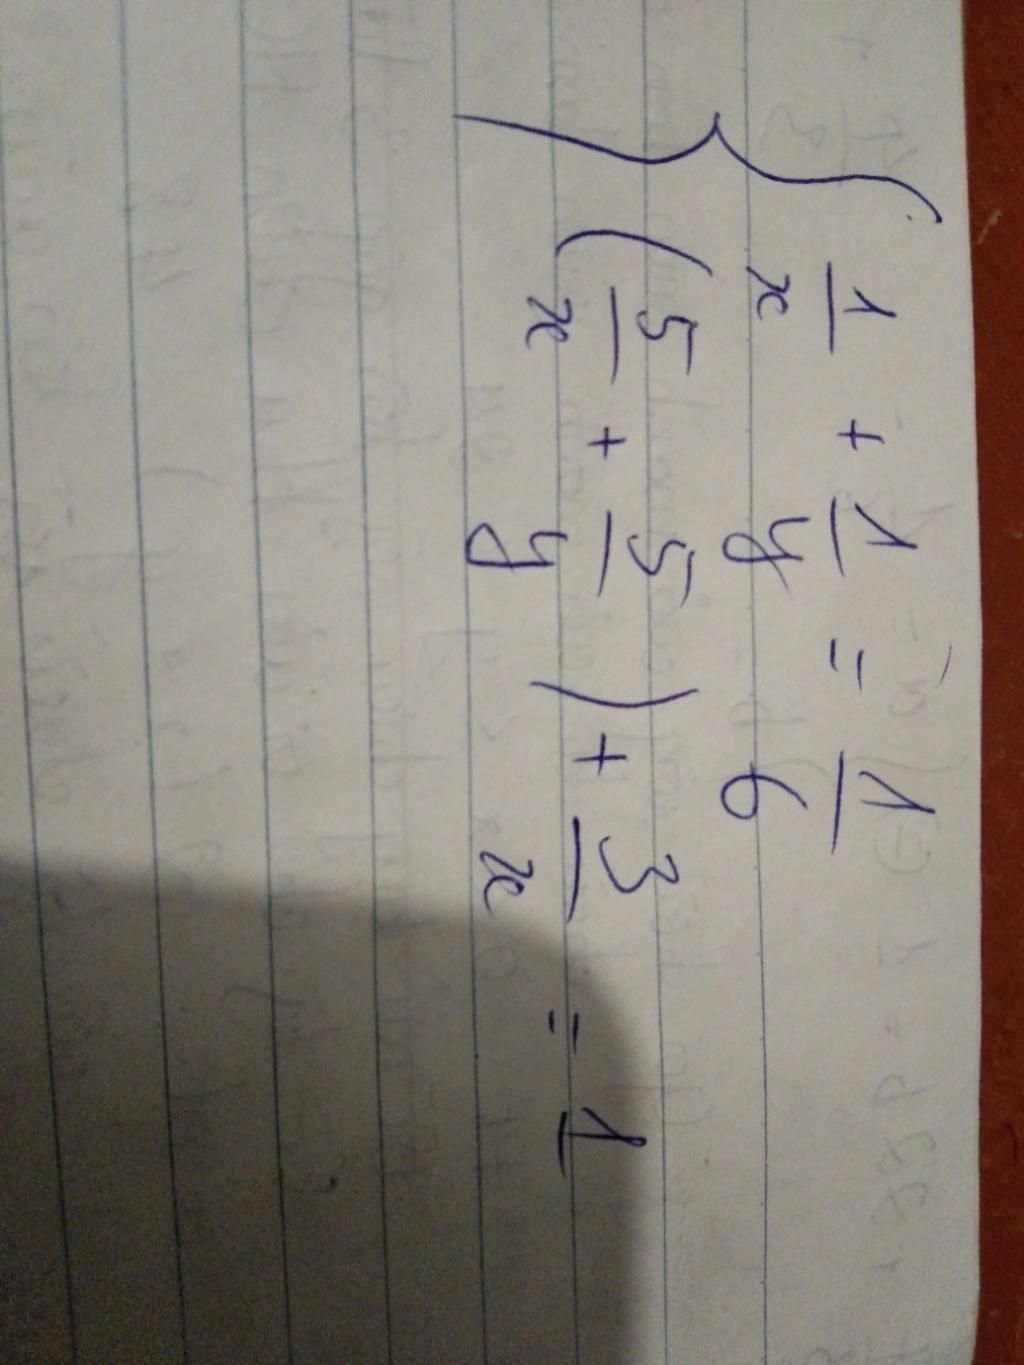 { 1/x + 1/y = 1/6
(5/x + 5/y) + 3/x = 1